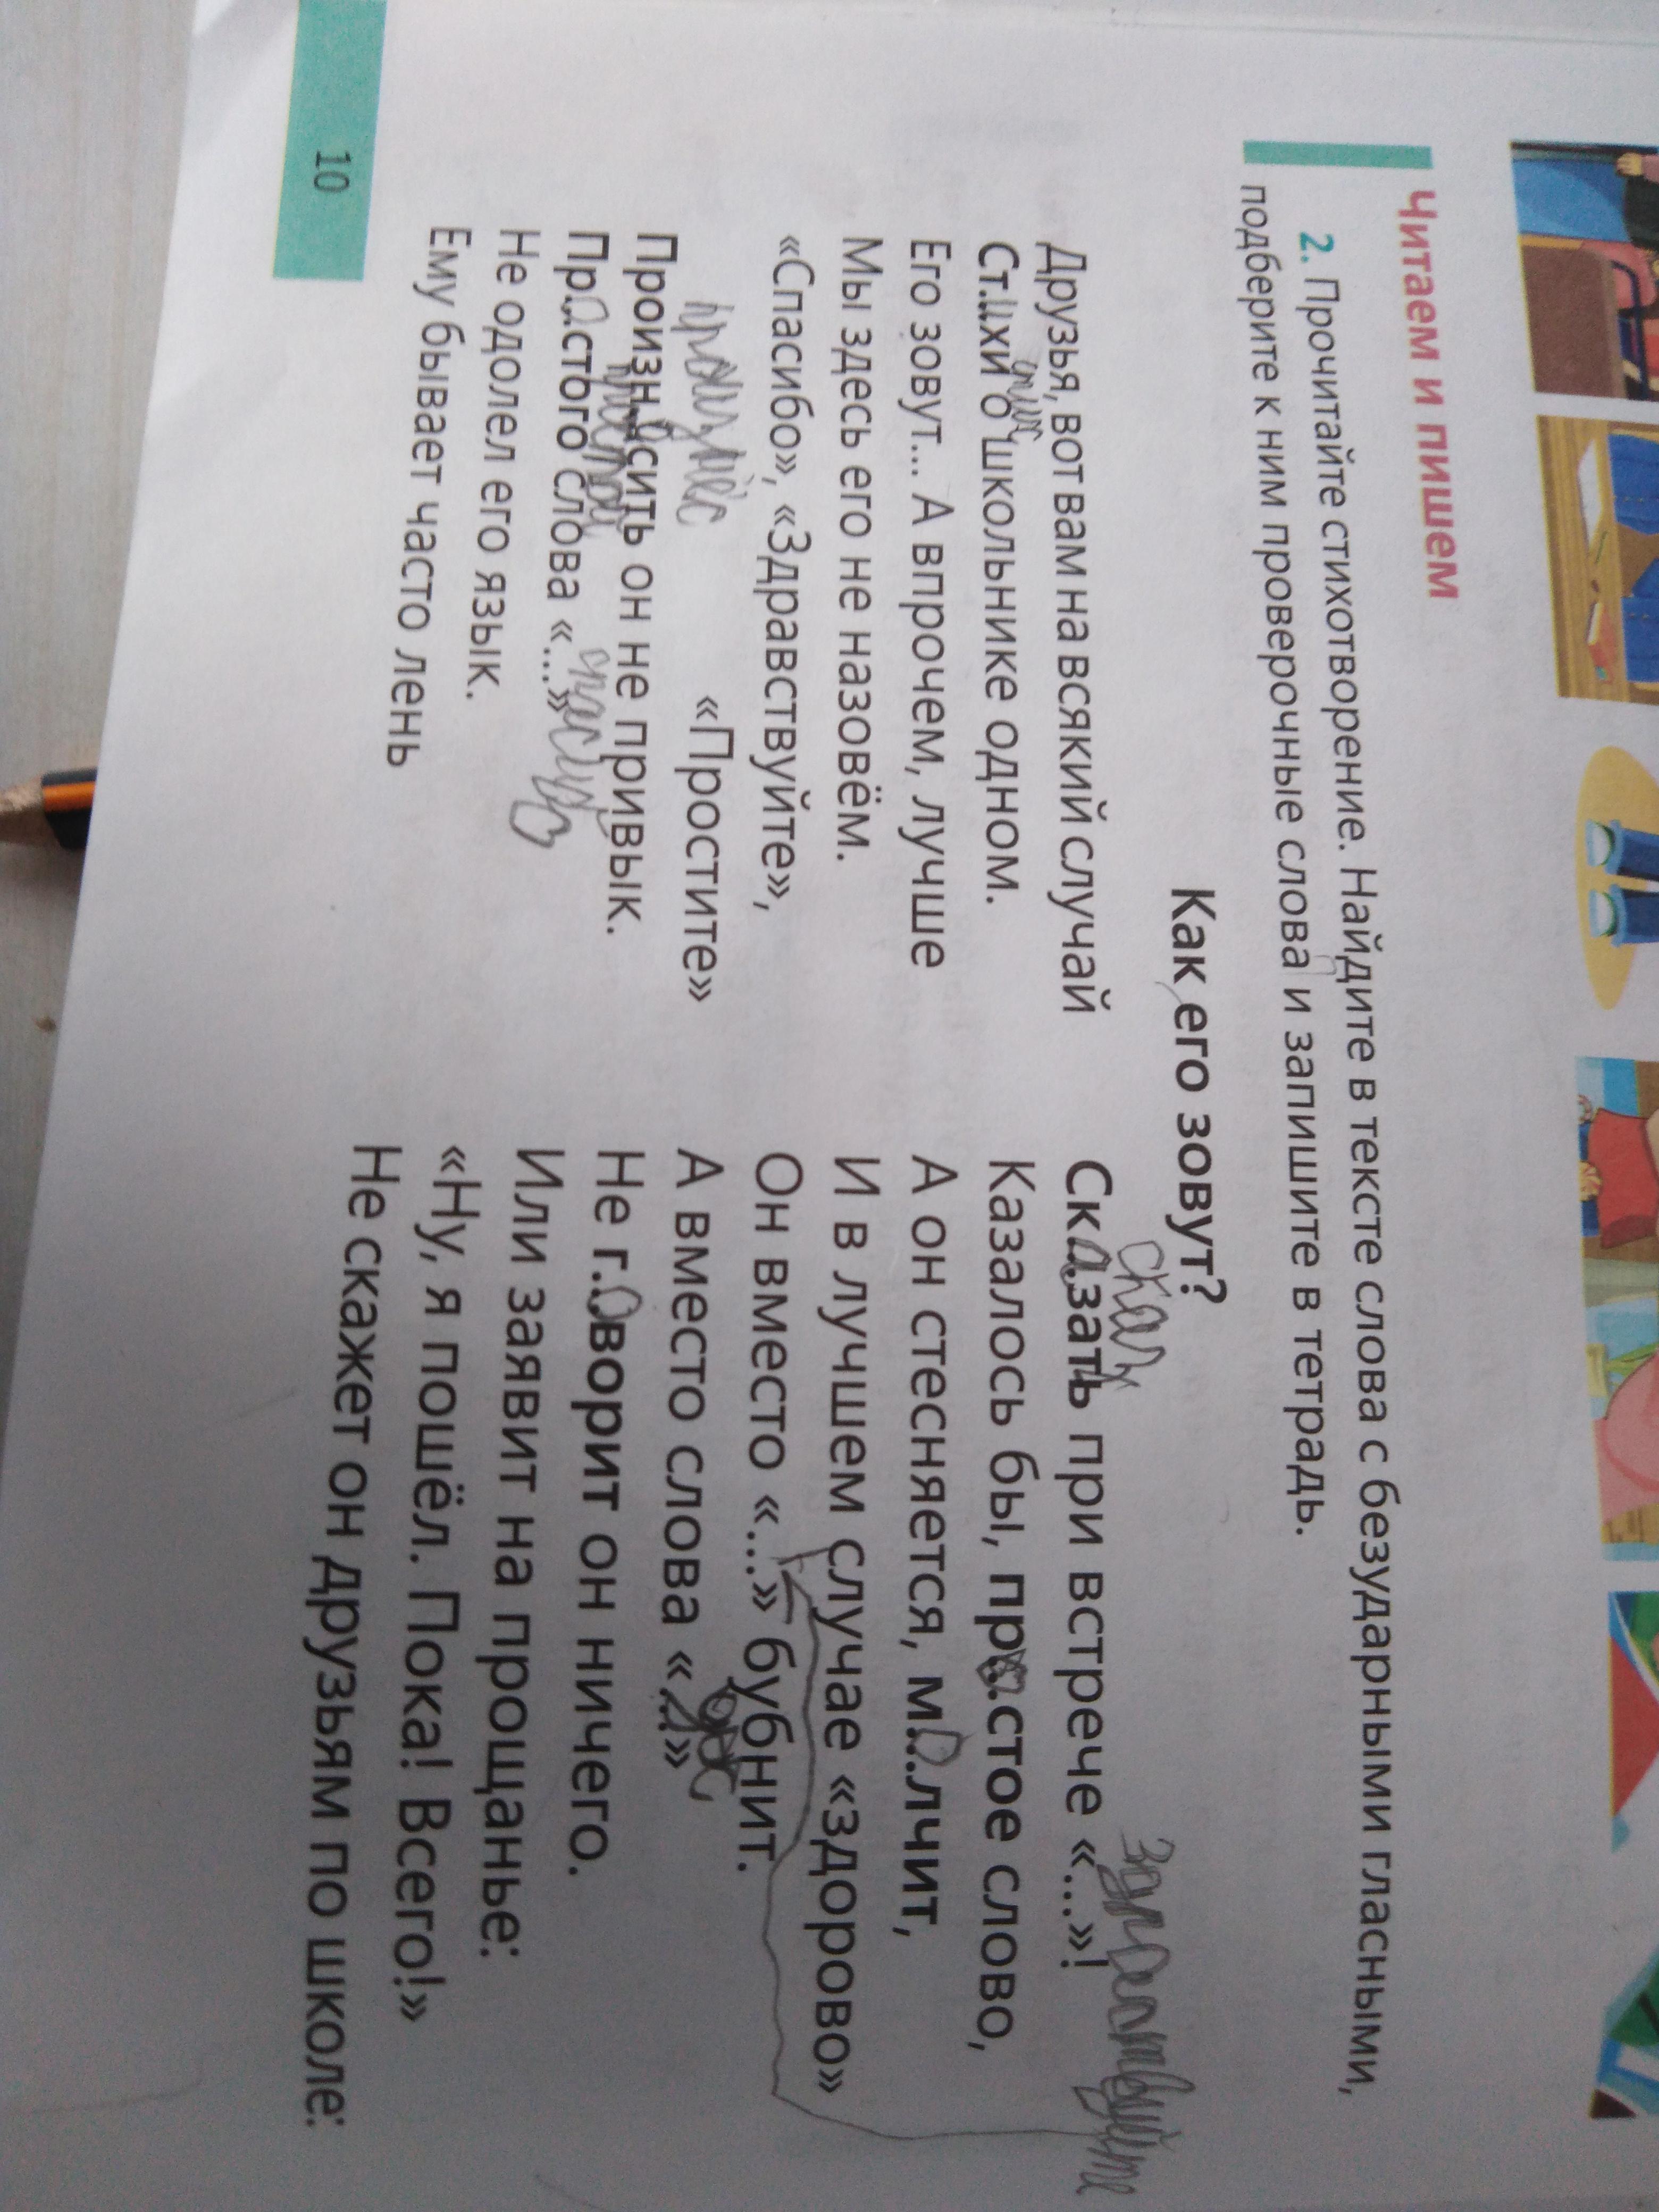 Читаем и пишем
2. Прочитайте стихотворение. Найдите в тексте слова с безударными гласными,
подберите к ним проверочные слова и запишите в тетрадь.
Как его зовут?
Друзья, вот вам на всякий случай
Ст..и..хи о школьнике одном.
Его зовут... А впрочем, лучше
Мы здесь его не назовём.
«Спасибо», «Здравствуйте»,
«Простите»
Произн..осить он не привык.
Пр..остого слова «...»
Не одолел его язык.
Ему бывает часто лень
Сказ
здравствуйте
Ск..а..зать при встрече «...»!
Казалось бы, пр...стое слово,
А он стесняется, м..о..лчит,
И в лучшем случае «здорово»
Он вместо «...» бубнит.
А вместо слова «...»
Не г..о..ворит он ничего.
Или заявит на прощанье:
«Ну, я пошёл. Пока! Всего!»
Не скажет он друзьям по школе:
10